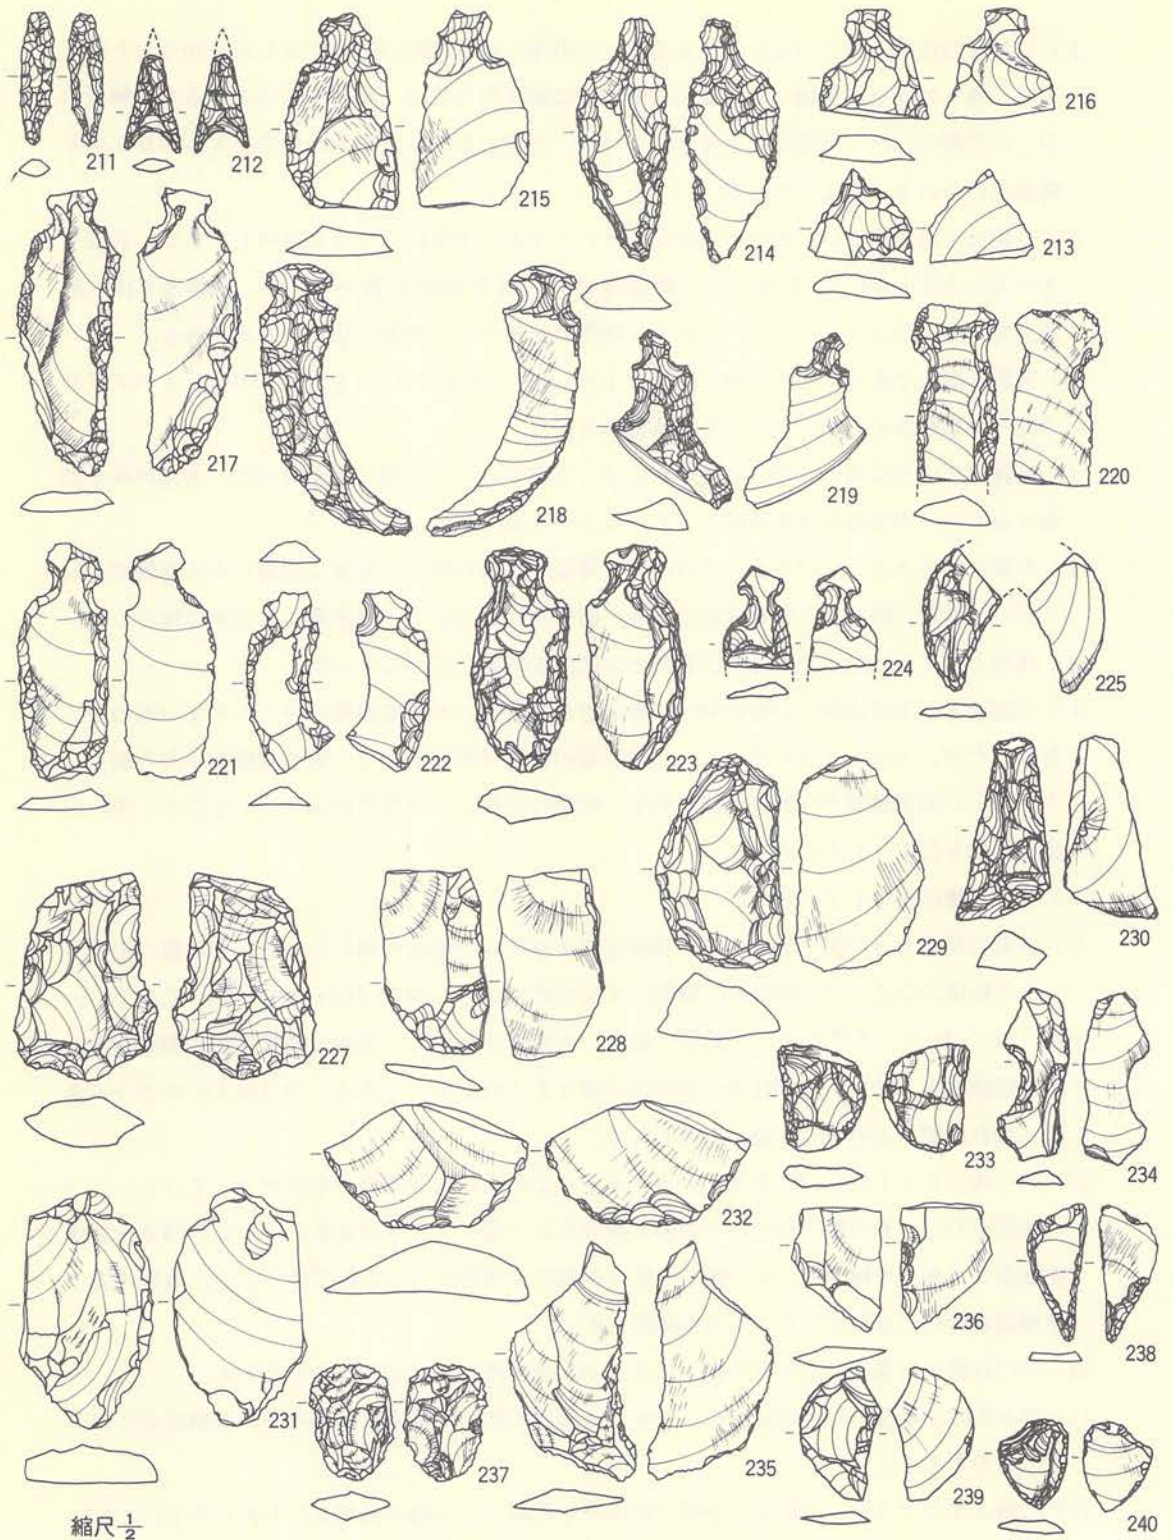 211
212
215
214
216
213
217
218
219
220
221
222
223
224
225
229
230
227
228
233
234
232
231
237
235
236
238
239
240
縮尺 1/2